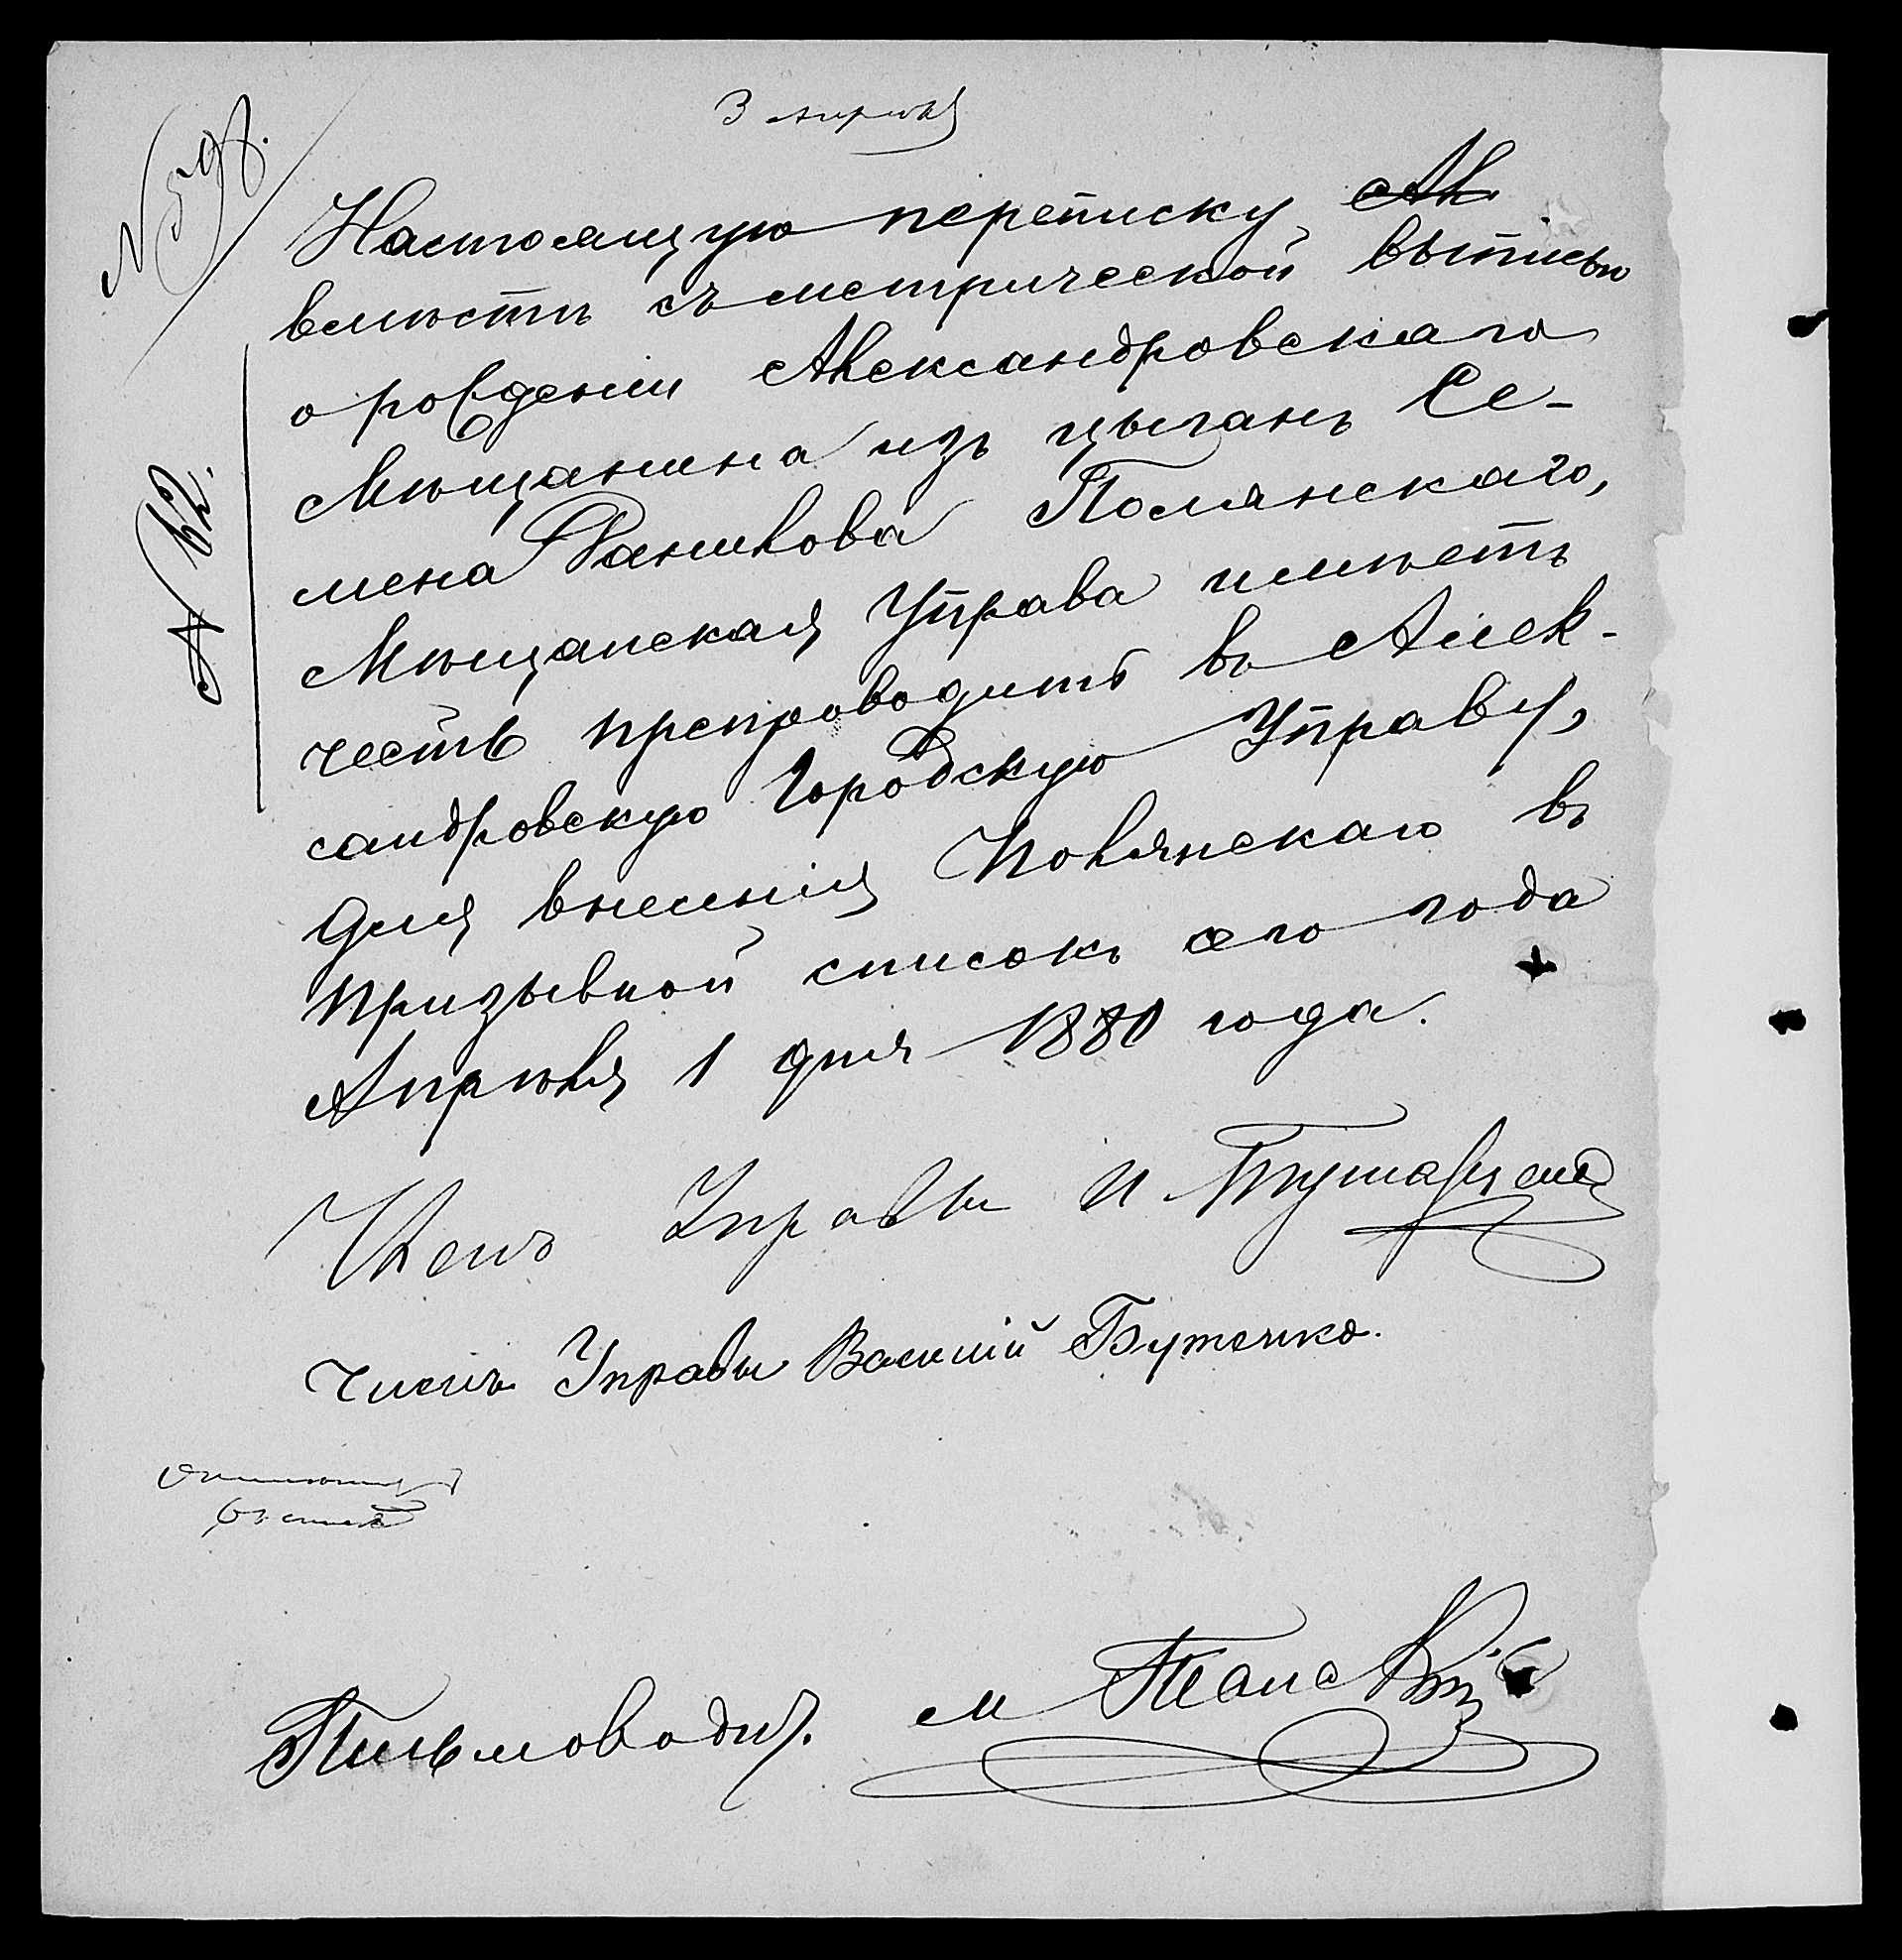 3 апрѣля
№ 598.
Настоящую переписку, Ал
вмѣстѣ съ метрической выписью
о рожденіи Александровскаго
Мѣщанина изъ цыганъ Се-
мена Данилова Полянскаго,
Мѣщанская Управа имѣетъ
честь препроводить въ Алек-
сандровскую Городскую Управу,
для внесенія Полянскаго въ
призывной списокъ его года
Апрѣля 1 дня 1880 года.
Членъ Управы И
Членъ Управы Василій Бутенко.
Письмовод.